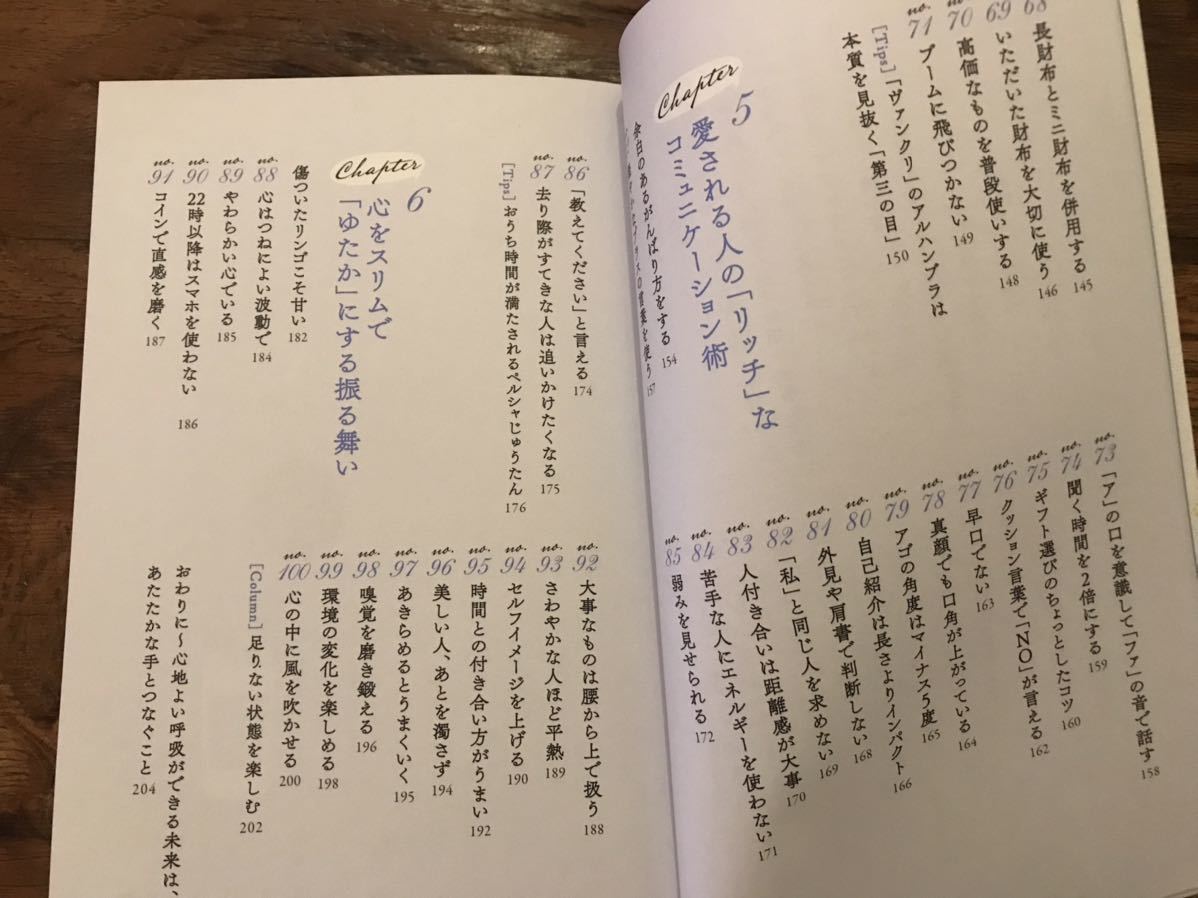 no.
68
長財布とミニ財布を併用する 145
no.
69
いただいた財布を大切に使う 146
no.
70
高価なものを普段使いする 148
no.
71
ブームに飛びつかない 149
[Tips]「ヴァンクリ」のアルハンブラは
本質を見抜く「第三の目」 150
Chapter
5
愛される人の「リッチ」な
コミュニケーション術
余白のあるがんばり方をする 154
の言葉を使う 157
no.
73
「ア」の口を意識して「ファ」の音で話す 158
no.
74
聞く時間を2倍にする 159
no.
75
ギフト選びのちょっとしたコツ 160
no.
76
クッション言葉で「NO」が言える 162
no.
77
早口でない 163
no.
78
真顔でも口角が上がっている 164
no.
79
アゴの角度はマイナス5度 165
no.
80
自己紹介は長さよりインパクト 166
no.
81
外見や肩書で判断しない 168
no.
82
「私」と同じ人を求めない 169
no.
83
人付き合いは距離感が大事 170
no.
84
苦手な人にエネルギーを使わない 171
no.
85
弱みを見せられる 172
no.
86
「教えてください」と言える 174
no.
87
去り際がすてきな人は追いかけたくなる 175
[Tips]おうち時間が満たされるペルシャじゅうたん 176
Chapter
6
心をスリムで
「ゆたか」にする振る舞い
傷ついたリンゴこそ甘い 182
no.
88
心はつねによい波動で 184
no.
89
やわらかい心でいる 185
no.
90
22時以降はスマホを使わない 186
no.
91
コインで直感を磨く 187
no.
92
大事なものは腰から上で扱う 188
no.
93
さわやかな人ほど平熱 189
no.
94
セルフイメージを上げる 190
no.
95
時間との付き合い方がうまい 192
no.
96
美しい人、あとを濁さず 194
no.
97
あきらめるとうまくいく 195
no.
98
嗅覚を磨き鍛える 196
no.
99
環境の変化を楽しめる 198
no.
100
心の中に風を吹かせる 200
[Column]足りない状態を楽しむ 202
おわりに〜心地よい呼吸ができる未来は、
あたたかな手とつなぐこと 204